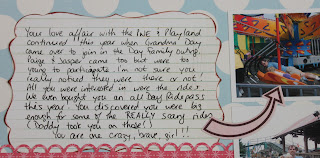 Your love affair with the PNE & Playland
continued this year when Grandma Day
came over to join in the Day Family outing.
Paige & Jasper came too but were to
young to participate. I'm not sure you
really noticed they were there or not!
All you were interested in were the rides.
We even bought you an all Day Ridepass
this year. You discovered you were big
enough for some of the REALLY scary rides
(Daddy took you on those!)
You are one crazy, brave, girl!!!